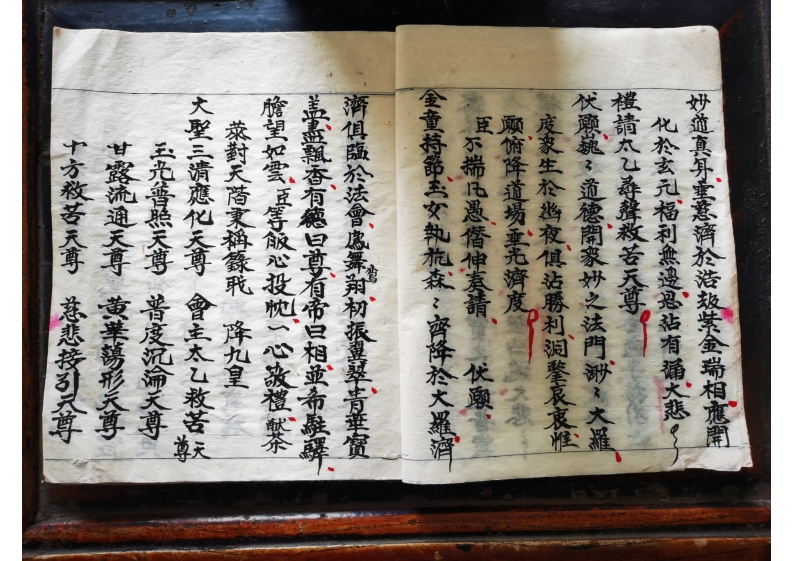 妙道真身垂慈濟於浩劫紫金瑞相應開
化於玄元福利無邊恩沾有漏大悲
禮請太乙尋聲救苦天尊
伏願巍〻道德開眾妙之法門渺〻大羅
度眾生於幽夜俱沾勝利洞鑒哀衷惟
願俯降道場垂光濟度
臣不揣凡愚僭伸奏請 伏願
金童持節玉女執旄森〻齊降於大羅濟
濟俱臨於法會鳳舞翔鸞初振翼翠青華寶
盖盡飄香有德曰尊有帝曰相並希駐驛
瞻望如雲臣等皈心投忱一心敬禮 獻茶
恭對天階秉稱籙職 降九皇
大聖三清應化天尊 會主太乙救苦天尊
玉光普照天尊 普度沉淪天尊
甘露流通天尊 黃華蕩形天尊
十方救苦天尊 慈悲接引天尊